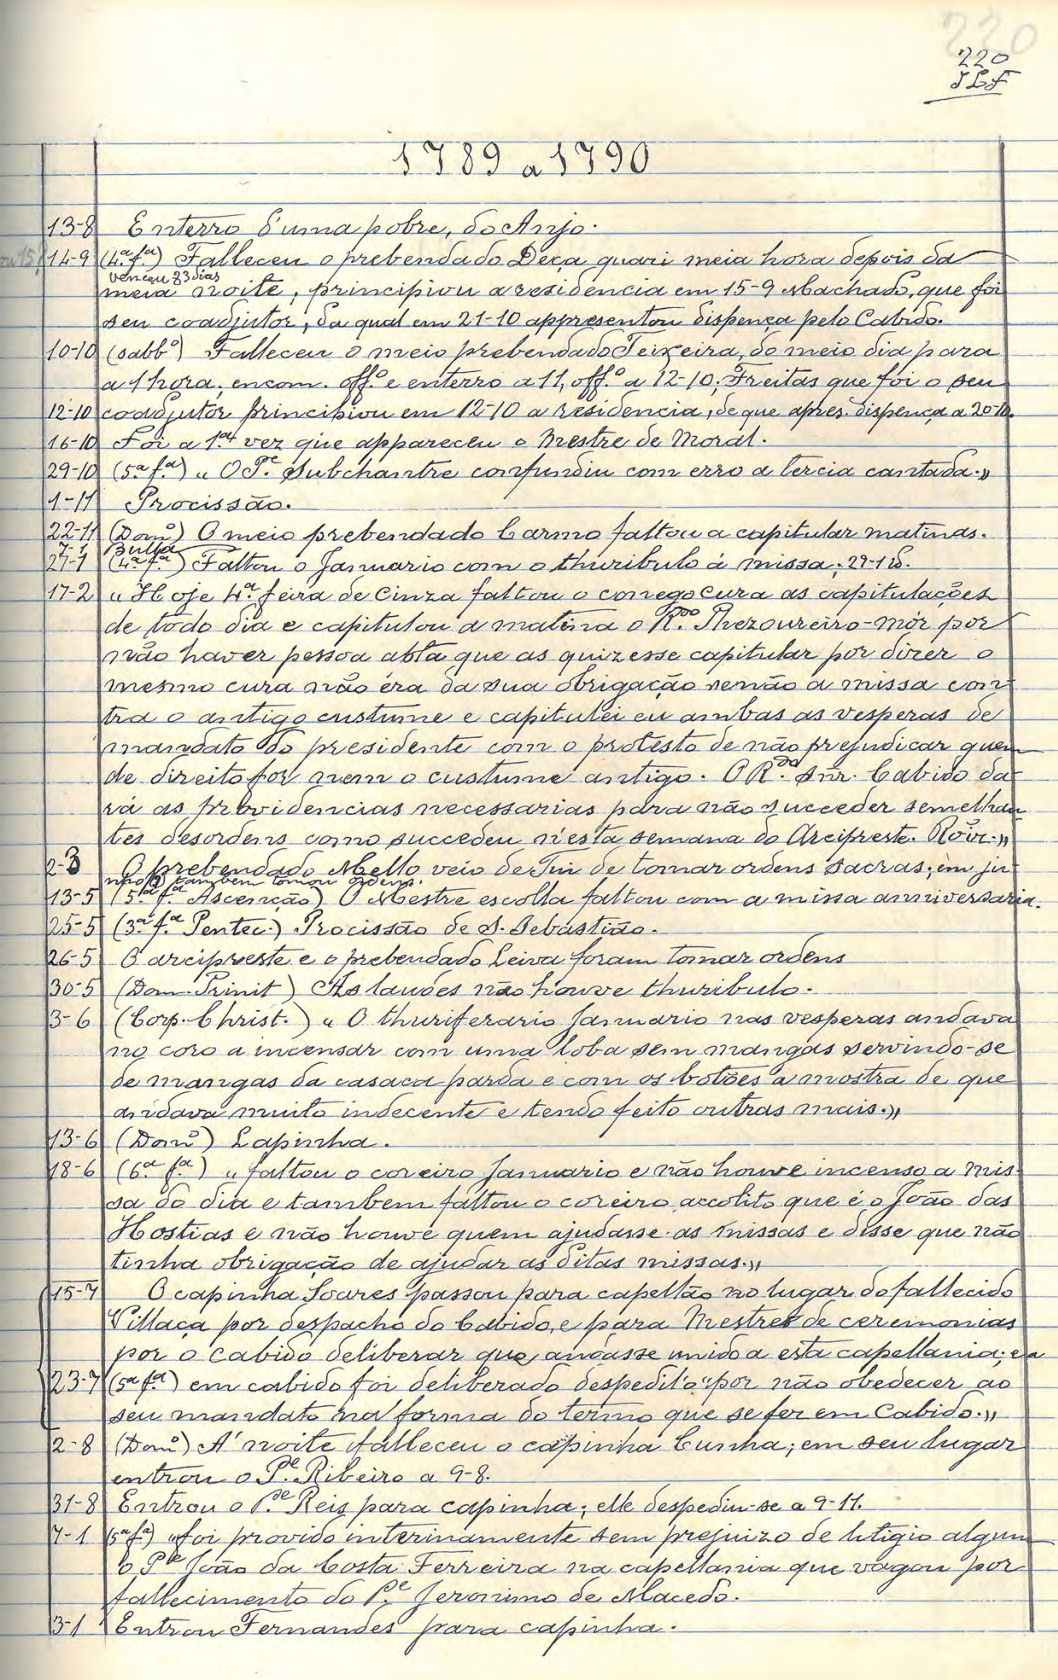 220
220
JLF
1789 a 1790
13-8 Enterro d'uma pobre, do Anjo.
ou 15 14-9 (4.ª f.ª) Falleceu o prebendado Deça quasi meia hora depois da
venceu 23 dias
meia noite; principiou a residencia em 15-9 Machado, que foi
seu coadjutor, da qual em 21-10 appresentou dispença pelo Cabido.
10-10 (sabb.º) Falleceu o meio prebendado Teixeira, do meio dia para
a 1 hora; encom. off.º e enterro a 11, off.º a 12-10; Freitas que foi o seu
12-10 coadjutor principiou em 12-10 a residencia, de que apres. dispença a 20-10.
16-10 Foi a 1.ª vez que appareceu o Mestre de Moral.
29-10 (5.ª f.ª) „ O P.e Subchantre confundiu com erro a tercia cantada.„
1-11 Procissão.
22-11 (Dom.º) O meio prebendado Carmo faltou a capitular matinas.
7-1 Bulla
27-1 (4.ª f.ª) Faltou o Januario com o thuribulo á missa; 29-1 id.
17-2 „ Hoje 4.ª feira de Cinza faltou o conego Cura as capitulações
de todo dia e capitulou a matina o R.do Thezoureiro-mór por
não haver pessoa abta que as quizesse capitular por dizer o
mesmo cura não éra da sua obrigação senão a missa con-
tra o antigo custume e capitulei eu ambas as vesperas de
mandato do presidente com o protesto de não prejudicar quem
de direito for nem o custume antigo. O R.do Snr. Cabido da-
rá as providencias necessarias para não succeder semelhan-
tes desordens como succedeu n'esta semana do Arcipreste. Roiz.„
2-3 O prebendado Mello veio de Tui de tomar ordens sacras; em ju-
nho (?) tambem tomou ordens.
13-5 (5.ª f.ª Ascenção) O Mestre escolla faltou com a missa anniversaria.
25-5 (3.ª f.ª Pentec.) Procissão de S. Sebastião.
26-5 O arcipreste e o prebendado Leiva foram tomar ordens
30-5 (Dom. Trinit) As laudes não houve thuribulo.
3-6 (Corp. Christ.) „ O thuriferario Januario nas vesperas andava
no coro a incensar com uma loba sem mangas servindo-se
de mangas da casaca parda e com os botões a mostra de que
andava muito indecente e tendo feito outras mais.„
13-6 (Dom.º) Lapinha.
18-6 (6.ª f.ª) „ faltou o coreiro Januario e não houve incenso a mis-
sa do dia e tambem faltou o coreiro accolito que é o João das
Hostias e não houve quem ajudasse as missas e disse que não
tinha obrigação de ajudar as ditas missas.„
15-7 O capinha Soares passou para capellão no lugar do fallecido
Villaça por despacho do Cabido, e para Mestre de ceremonias
por o Cabido deliberar que andasse unido a esta capellania; e a
23-7 (5ª f.ª) em cabido foi deliberado despedil-o „por não obedecer ao
seu mandato na forma do termo que se fez em Cabido.„
2-8 (Dom.º) A' noite falleceu o capinha Cunha; em seu lugar
entrou o P.e Ribeiro a 9-8.
31-8 Entrou o P.e Reis para capinha; elle despediu-se a 9-11.
7-1 (5ª fª) „foi provido interinamente sem prejuizo de litigio algum
o P.e João da Costa Ferreira na capellania que vagou por
fallecimento do P.e Jeronimo de Macedo.
3-1 Entrou Fernandes para capinha.